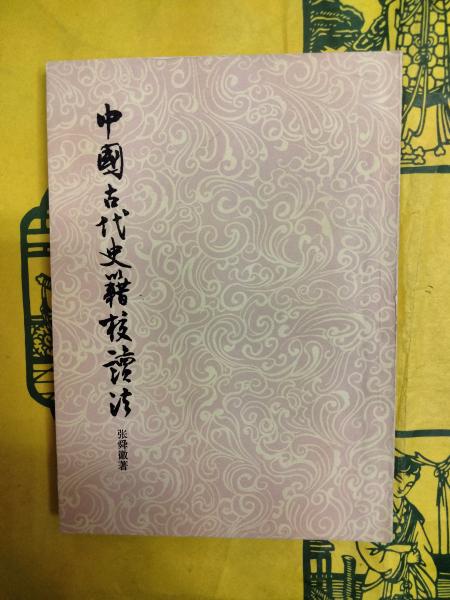 中國古代史籍校讀法
张舜徽著